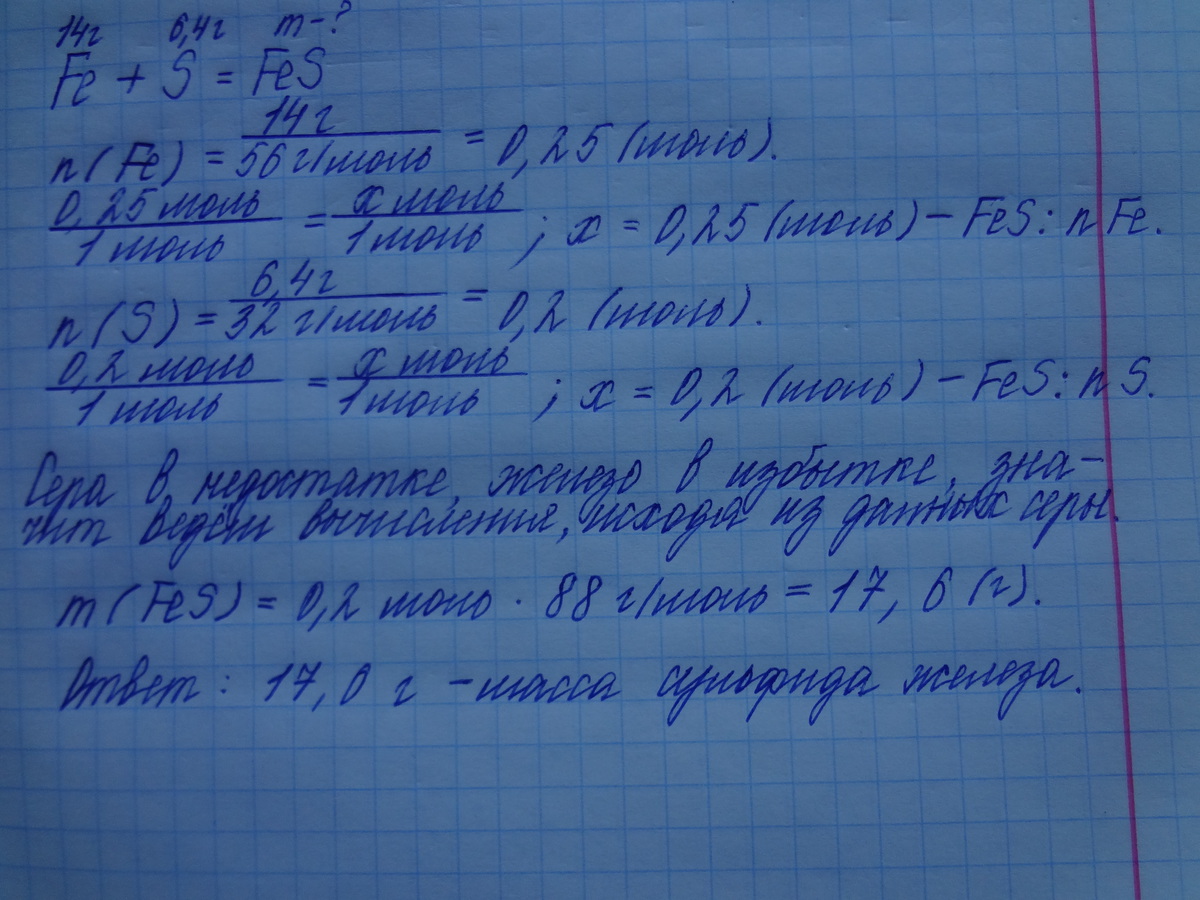 14г 6,4г m-?
Fe + S = FeS
n(Fe) = 14г / 56 г/моль = 0,25 (моль).
0,25 моль / 1 моль = x моль / 1 моль ; x = 0,25 (моль) - FeS: n Fe.
n(S) = 6,4г / 32 г/моль = 0,2 (моль).
0,2 моль / 1 моль = x моль / 1 моль ; x = 0,2 (моль) - FeS: n S.
Сера в недостатке, железо в избытке, зна-
чит ведём вычисления, исходя из данных серы.
m(FeS) = 0,2 моль · 88 г/моль = 17,6 (г).
Ответ: 17,0 г - масса сульфида железа.